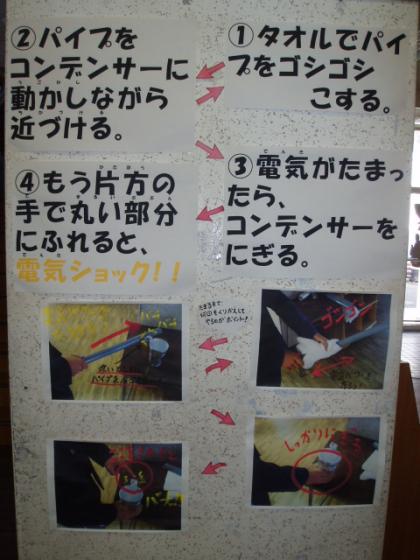 ①タオルでパイ
プをゴシゴシ
こする。
②パイプを
コンデンサーに
動かしながら
近づける。
③電気がたまっ
たら、
コンデンサーを
にぎる。
④もう片方の
手で丸い部分
にふれると、
電気ショック!!
たまるまで
ゴシゴシ
しっかりにぎる